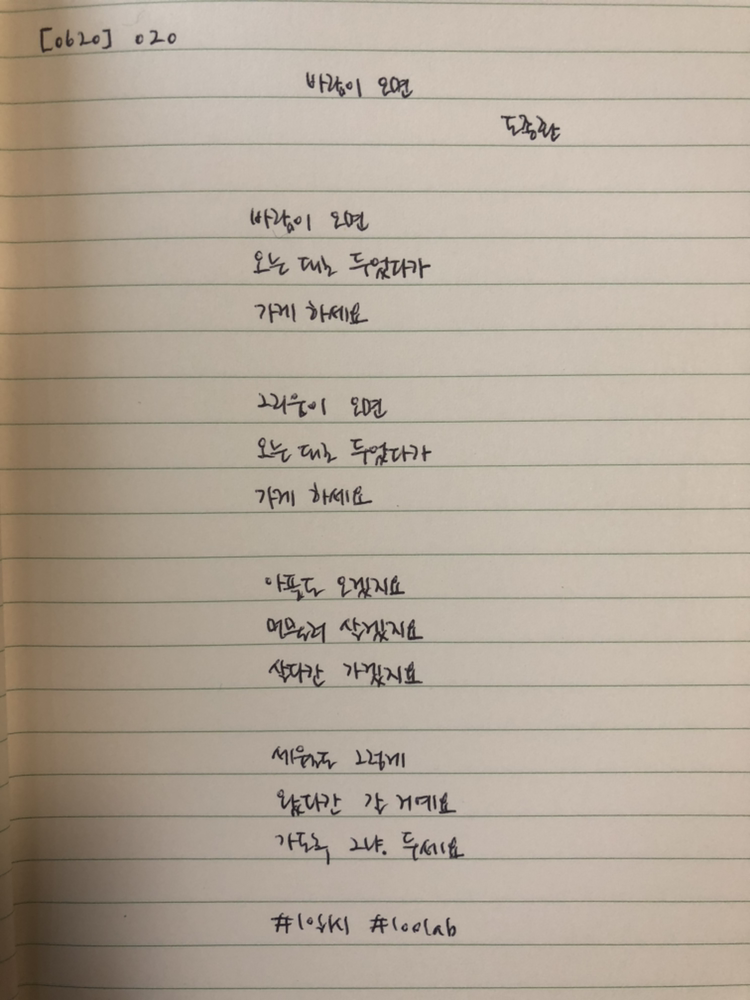 [0620] 020
바람이 오면
도종환
바람이 오면
오는 대로 두었다가
가게 하세요
그리움이 오면
오는 대로 두었다가
가게 하세요
아픔도 오겠지요
머물러 살겠지요
살다간 가겠지요
세월도 그렇게
왔다간 갈 거예요
가도록 그냥. 두세요
#1일1시 #100lab